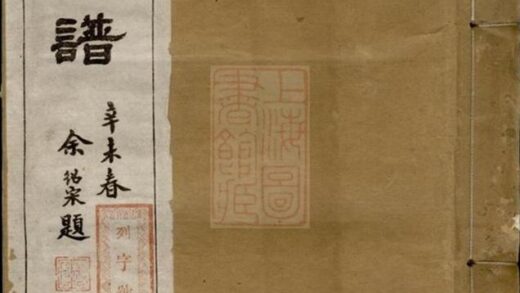 譜
辛未春
余紹宋題
列字號
上海圖
書館臧